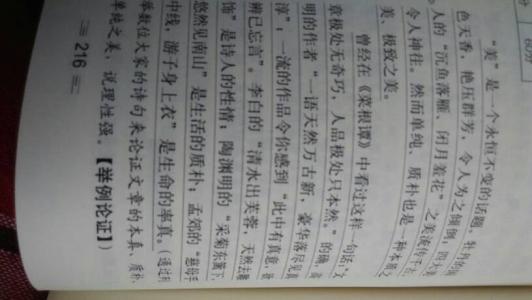 "美"是一个永恒不变的话题。牡丹的国
色天香,艳压群芳,令人为之倾倒,四大美
人的"沉鱼落雁、闭月羞花"之美流传千古
令人神往。然而单纯、质朴也是一种本真之
美、极致之美。
曾经在《菜根谭》中看过这样一句话:"文
章极处无奇巧,人品极处只本然。"的确,
明的作者"一语天然万古新,豪华落尽见真
淳",一流的作品令你感到"此中有真意,欲
辨已忘言"。李白的"清水出芙蓉,天然去雕
饰"是诗人的性情;陶渊明的"采菊东篱下,
悠然见南山"是生活的质朴;孟郊的"慈母手
中线,游子身上衣"是生命的率真。(通过列
举数位大家的诗句来论证文章的本真、质朴、
单纯之美,说理性强。【举例论证】)
216